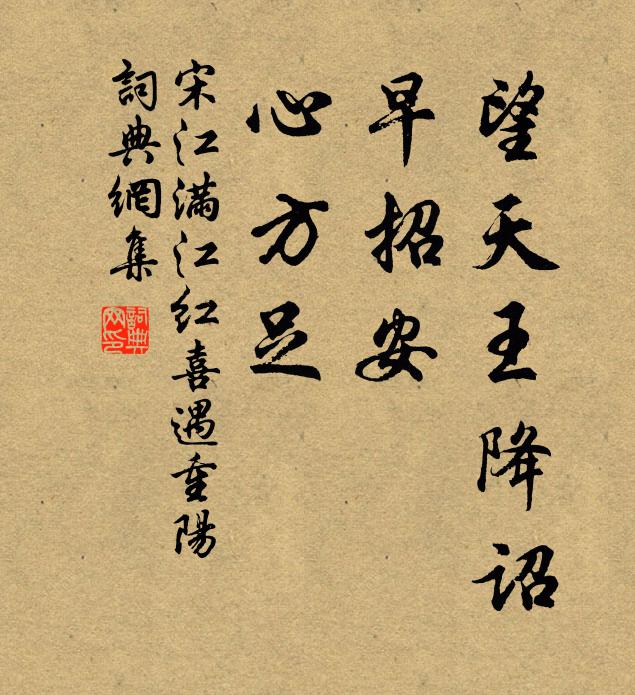 望天王降诏
早招安
心方足
宋江满江红喜遇重陽
詞典網集
詞典网印